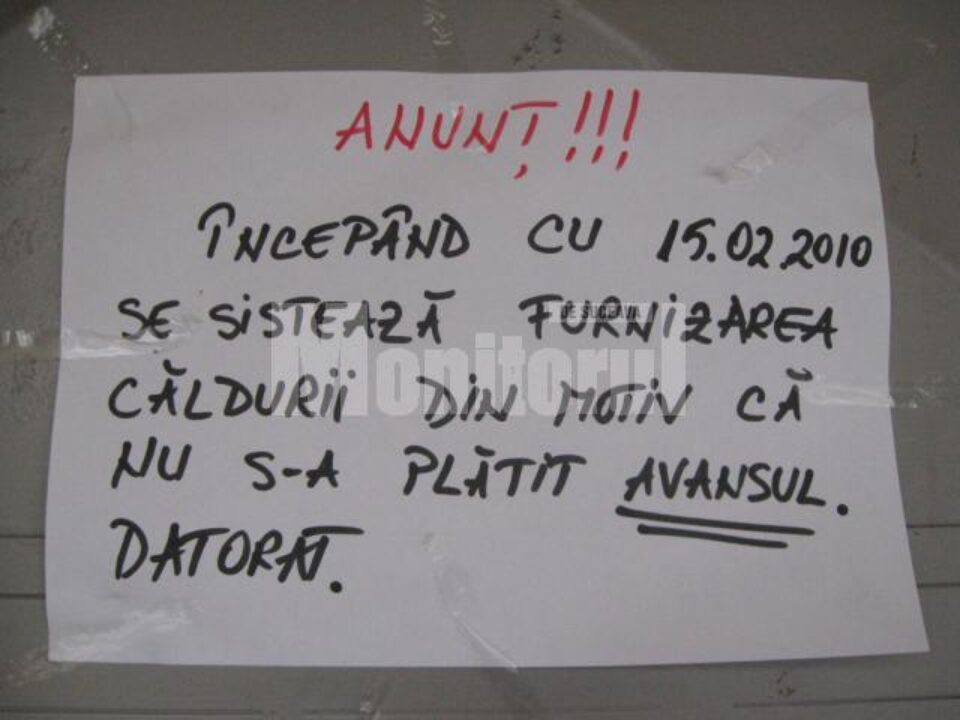 ANUNȚ!!!
ÎNCEPÂND CU 15.02.2010
SE SISTEAZĂ FURNIZAREA
CĂLDURII DIN MOTIV CĂ
NU S-A PLĂTIT AVANSUL.
DATORAT.
DE SUCEAVA
Monitorul